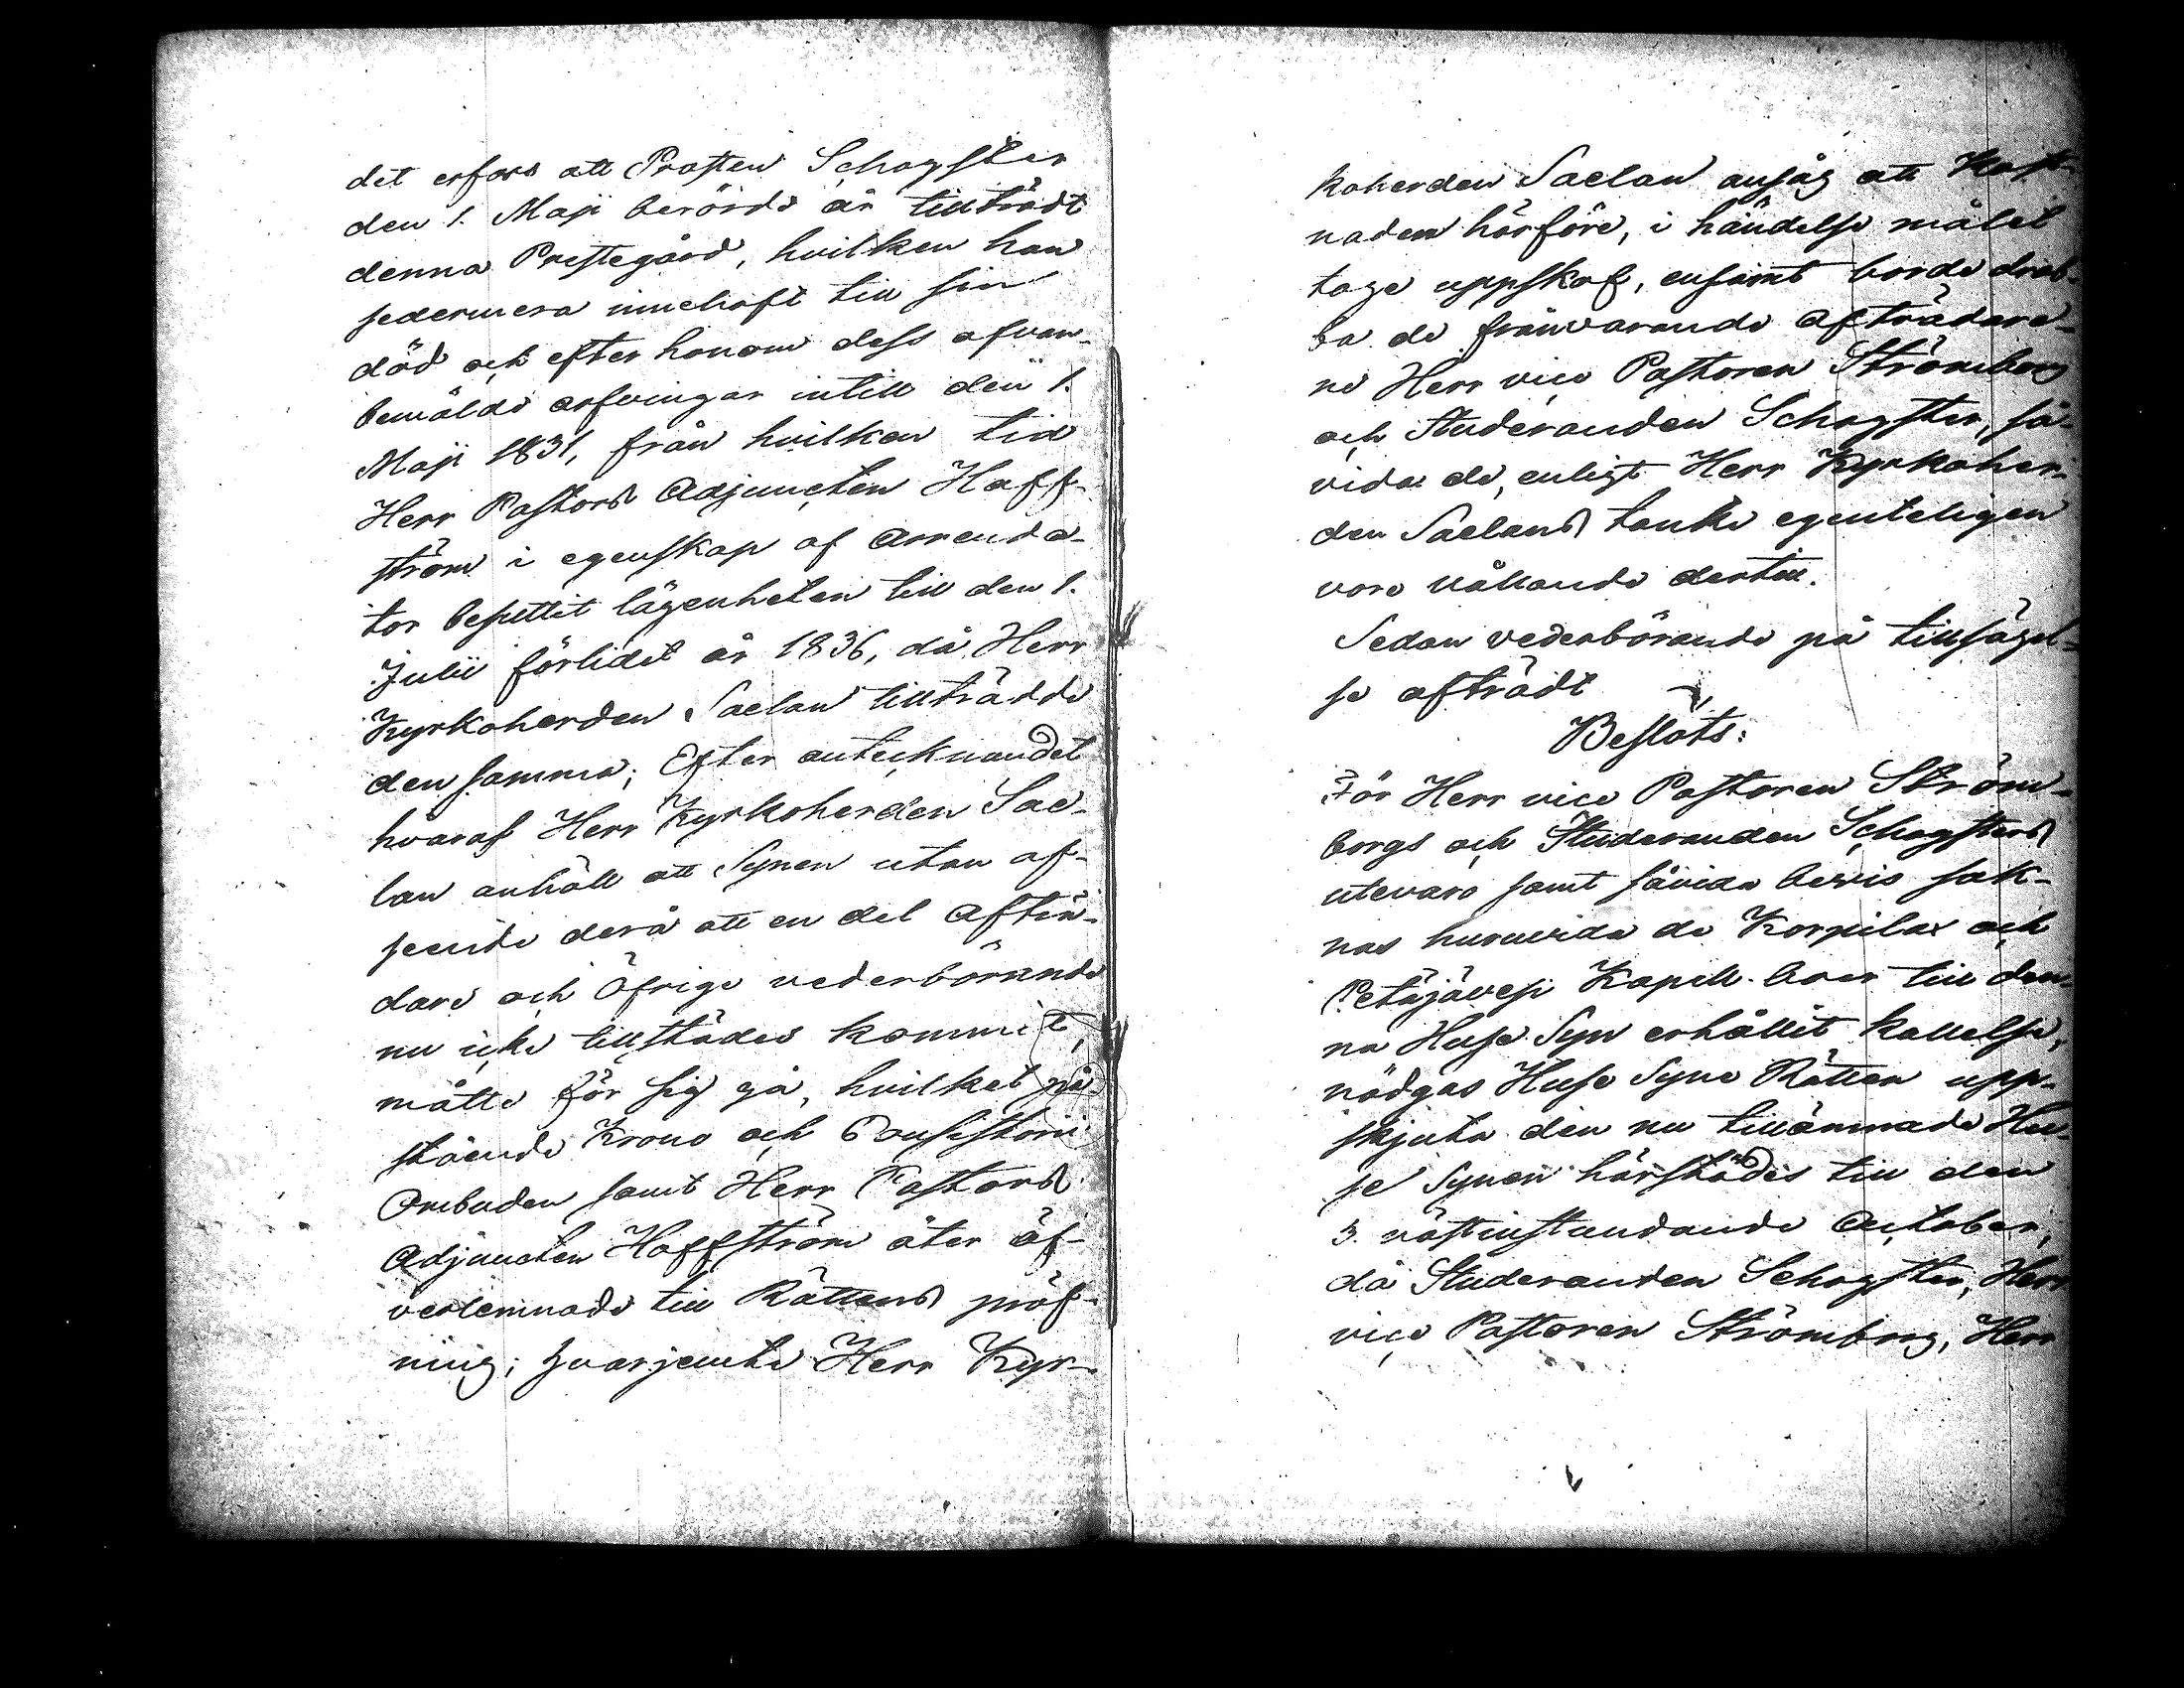 det erfors att Prosten Schogster
den 1. Maji berörde år tillträdt
denna Prestegård, hvilken han
sedermera innehaft till sin
död och efter honom dess ofvan-
bemälde arfvingar intill den 1.
Maji 1831, från hvilken tid
Herr Pastors Adjuncten Hoff-
ström i egenskap af Arrenda-
tor besuttit lägenheten till den 1.
Julii förlidet år 1836, då Herr
Kyrkoherden Saelan tillträdde
densamma; Efter antecknandet
hvaraf Herr Kyrkoherden Sae-
lan anhöll att Synen utan af-
seende derå att en del Afträ-
dare och Öfrige vederbörande
nu icke tillstädes kommit,
måtte för sig gå, hvilket på-
stående Krono och Consistorii
Ombuden samt Herr Pastors
Adjuncten Hoffström åter öf-
verlemnade till Rättens pröf-
ning; hvarjemte Herr Kyr-
koherden Saelan ansåg att Kost-
naden härföre, i händelse målet
toge uppskof, ensamt borde drab-
ba de frånvarande Afträdare-
ne Herr vice Pastoren Strömborg
och Studeranden Schogster, så-
vida de, enligt Herr Kyrkoher-
den Saelans tanke egenteligen
vore vållande dertill.
Sedan vederbörande på tillsägel-
se afträdt
Beslöts:
För Herr vice Pastoren Ström-
borgs och Studeranden Schogsters
utevaro samt såvida bevis sak-
nas huruvida de Korpilax och
Petäjävesi Kapell boer till den-
na Huse Syn erhållit kallelse,
nödgas Huse Syne Rätten upp-
skjuta den nu tillämnade Hu-
se Synen härstädes till den
3. nästinstundande October,
då Studeranden Schogster, Herr
vice Pastoren Strömborg, Herr